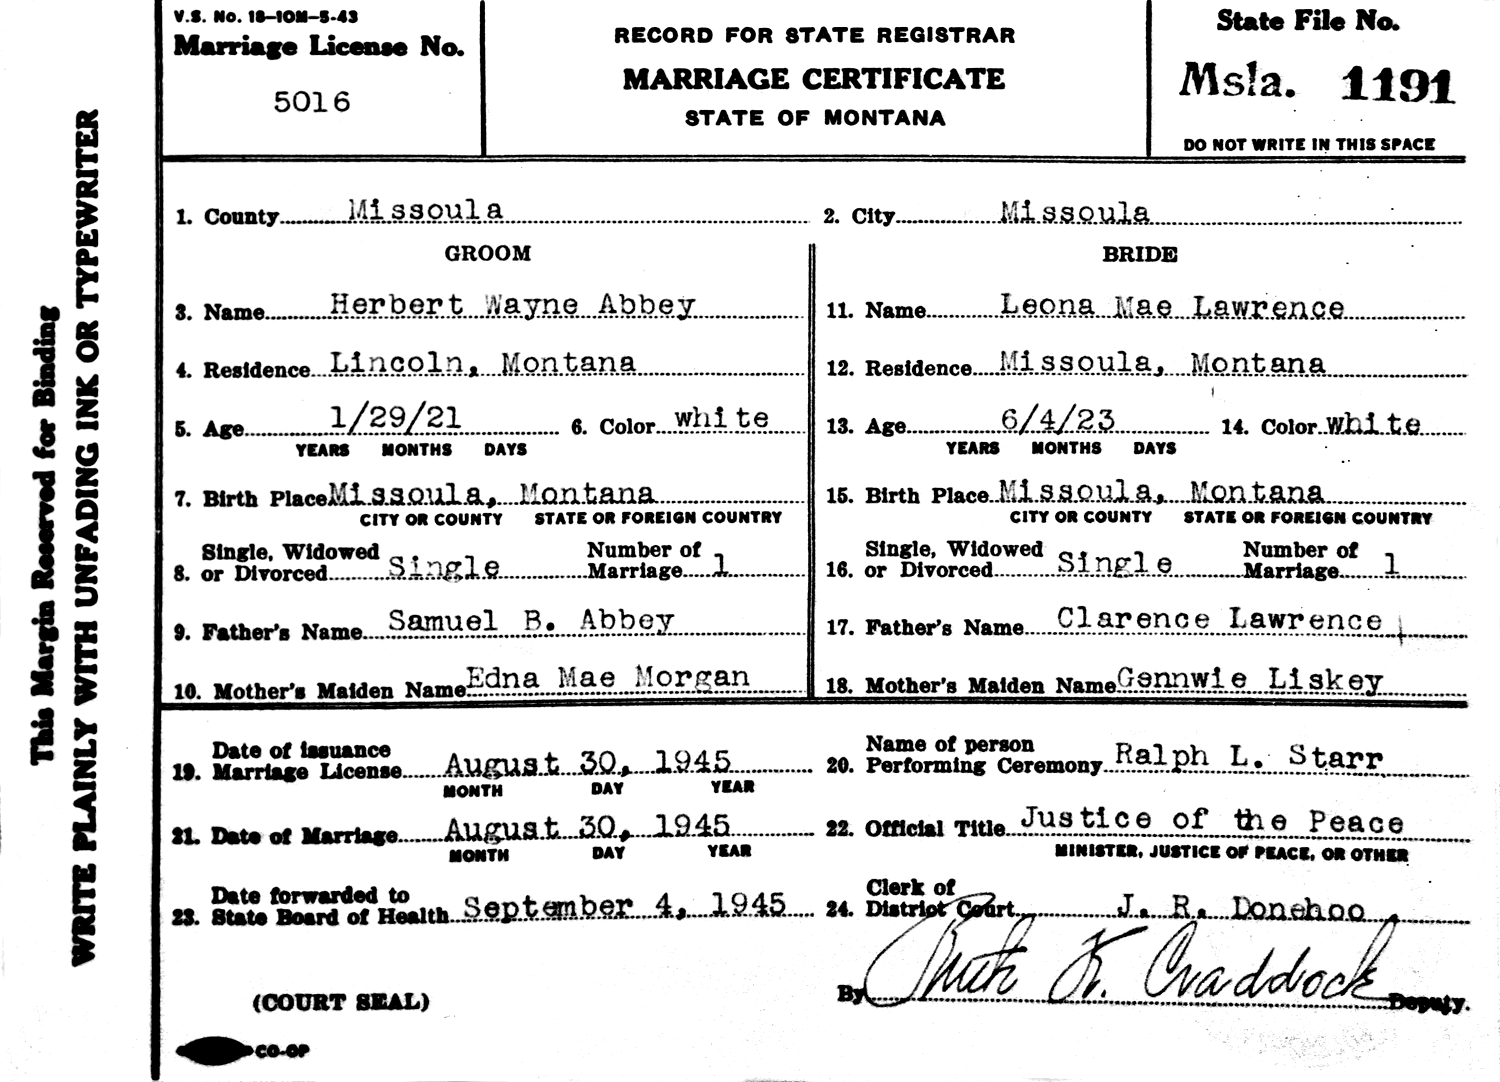 V.S. No. 18-10M-5-43
Marriage License No.
5016
RECORD FOR STATE REGISTRAR
MARRIAGE CERTIFICATE
STATE OF MONTANA
State File No.
Msla. 1191
DO NOT WRITE IN THIS SPACE
This Margin Reserved for Binding
WRITE PLAINLY WITH UNFADING INK OR TYPEWRITER
1. County Missoula
2. City Missoula
GROOM
BRIDE
3. Name Herbert Wayne Abbey
11. Name Leona Mae Lawrence
4. Residence Lincoln, Montana
12. Residence Missoula, Montana
5. Age 1/29/21 6. Color white
YEARS MONTHS DAYS
13. Age 6/4/23 14. Color white
YEARS MONTHS DAYS
7. Birth Place Missoula, Montana
CITY OR COUNTY STATE OR FOREIGN COUNTRY
15. Birth Place Missoula, Montana
CITY OR COUNTY STATE OR FOREIGN COUNTRY
8. Single, Widowed or Divorced Single Number of Marriage 1
16. Single, Widowed or Divorced Single Number of Marriage 1
9. Father's Name Samuel B. Abbey
17. Father's Name Clarence Lawrence
10. Mother's Maiden Name Edna Mae Morgan
18. Mother's Maiden Name Gennwie Liskey
19. Date of issuance Marriage License August 30, 1945
MONTH DAY YEAR
20. Name of person Performing Ceremony Ralph L. Starr
21. Date of Marriage August 30, 1945
MONTH DAY YEAR
22. Official Title Justice of the Peace
MINISTER, JUSTICE OF PEACE, OR OTHER
23. Date forwarded to State Board of Health September 4, 1945
24. Clerk of District Court J. R. Donehoo
By Ruth K. Craddock Deputy.
(COURT SEAL)
CO-OP